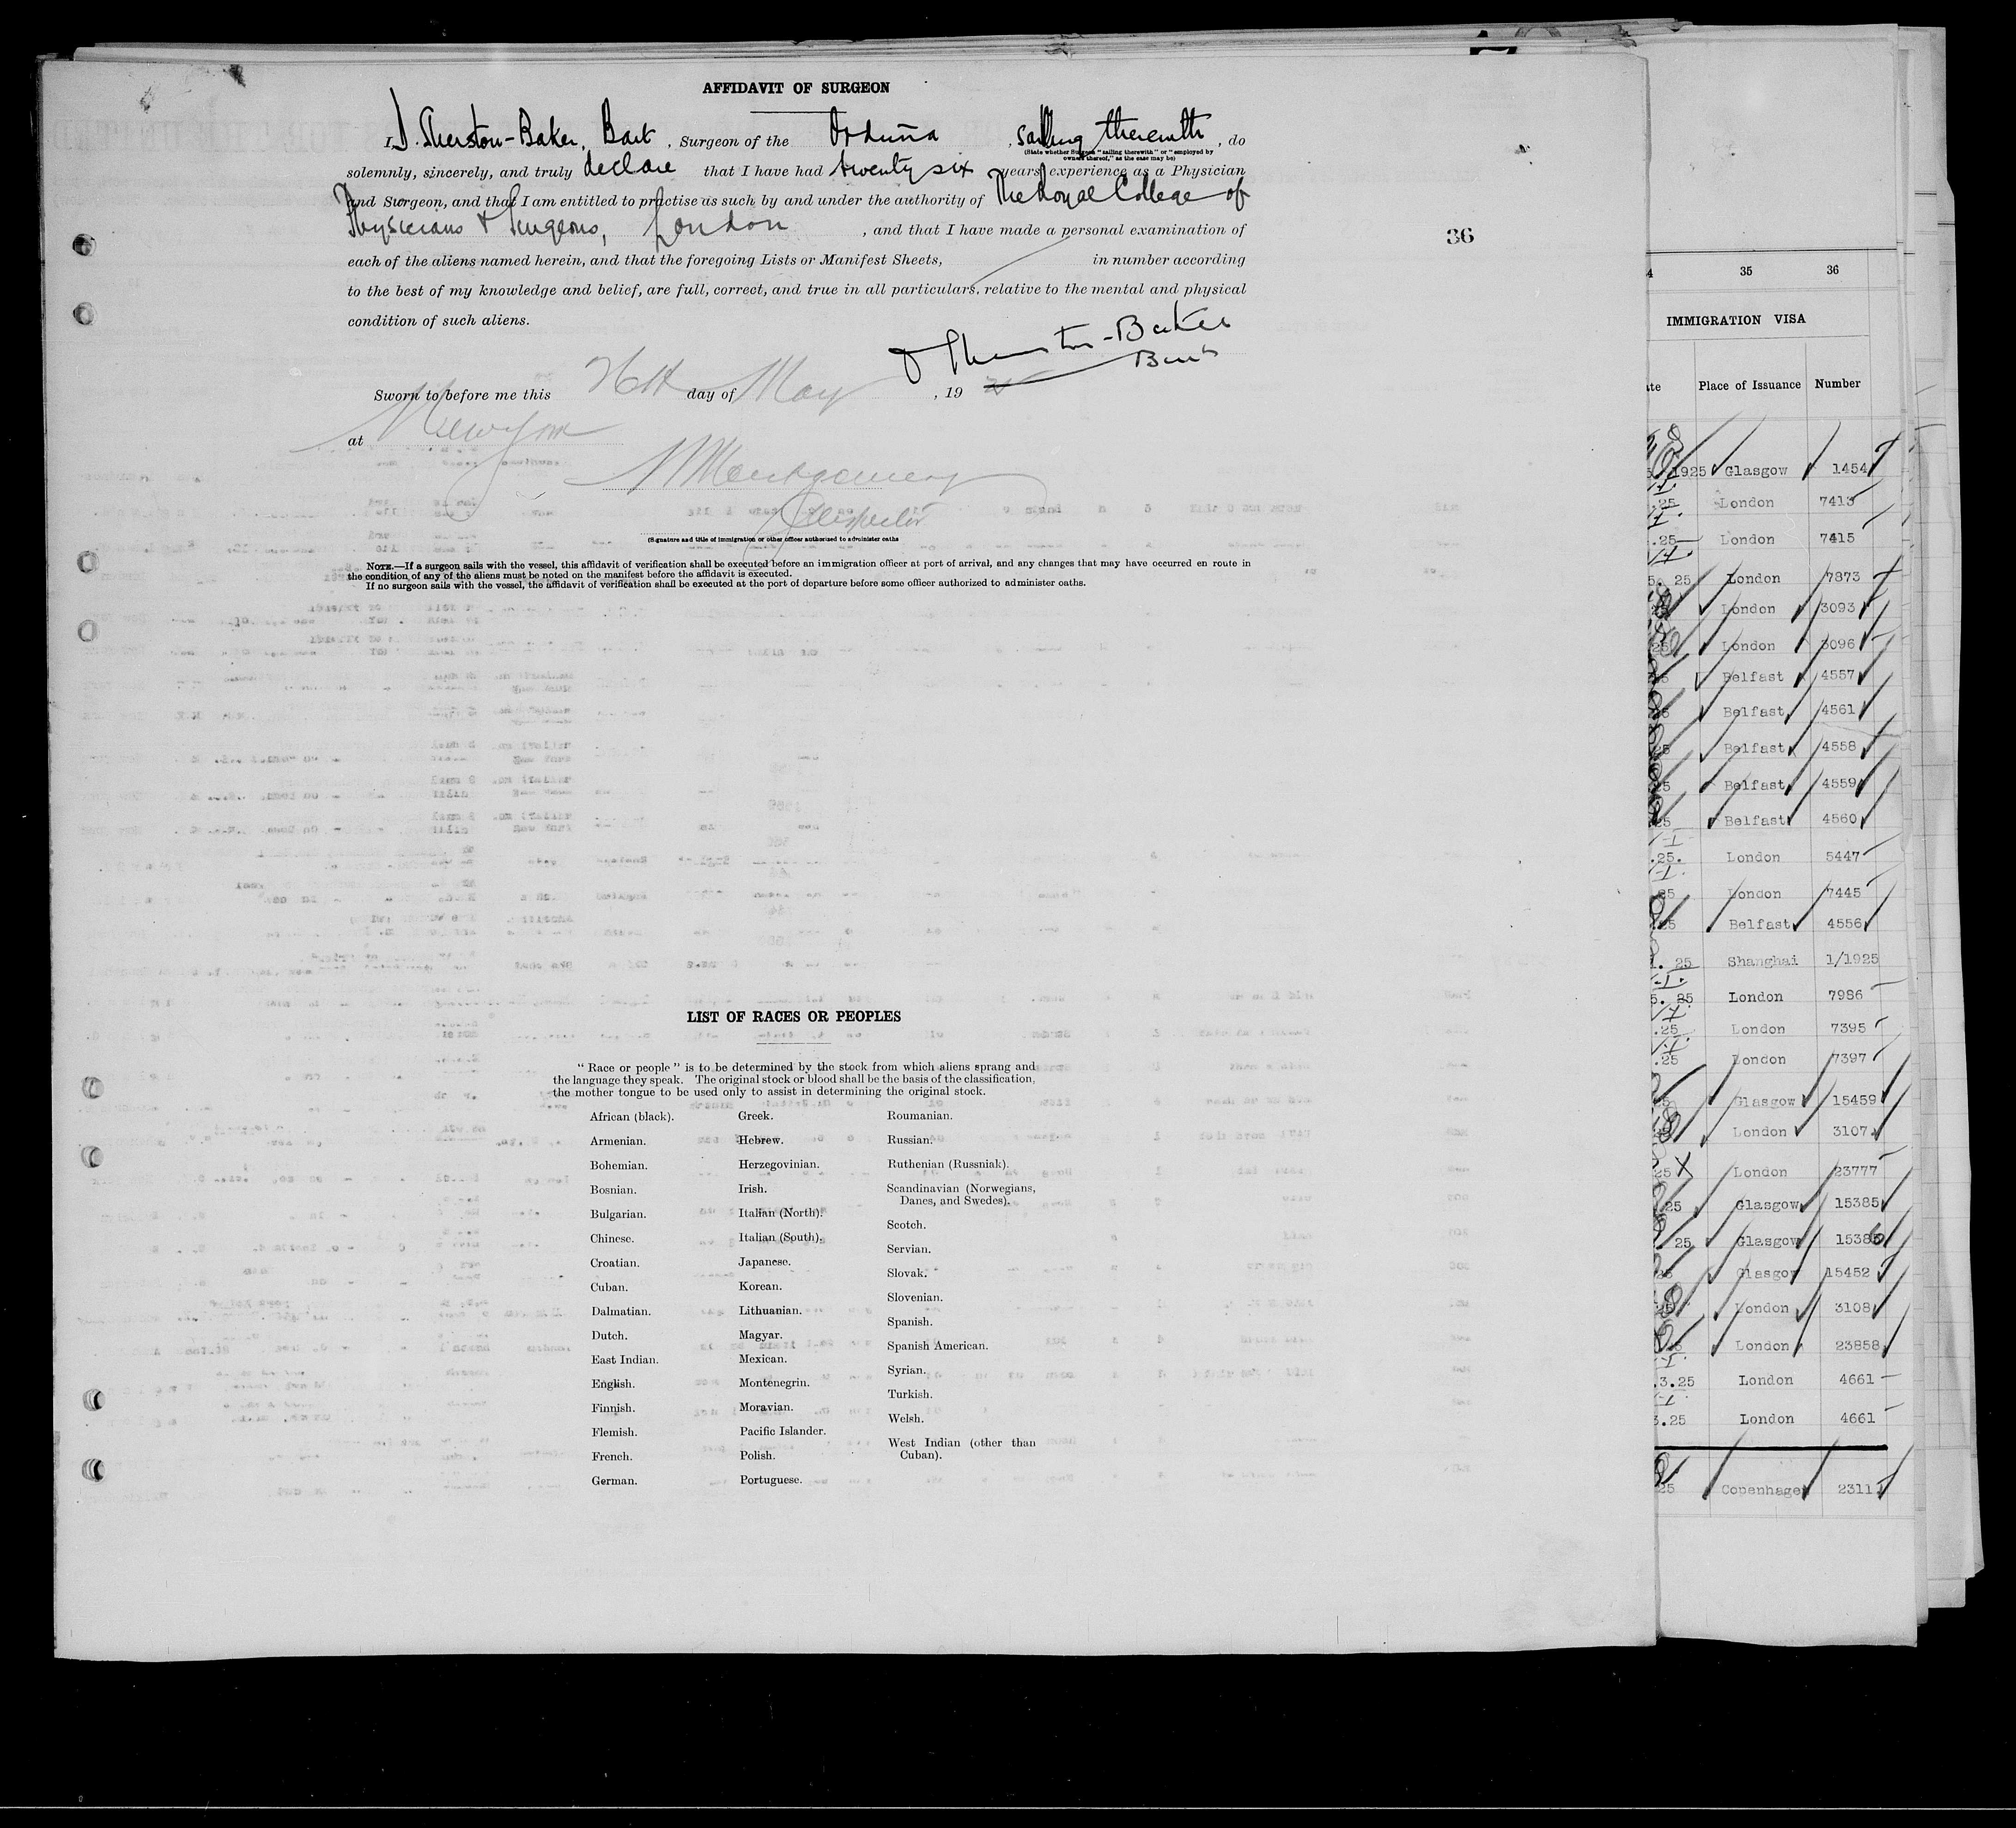 AFFIDAVIT OF SURGEON
I, D. Sherston-Baker, Bart, Surgeon of the Orduña, sailing therewith, do
(State whether Surgeon "sailing therewith" or "employed by
owners thereof," as the case may be)
solemnly, sincerely, and truly declare that I have had twenty six years experience as a Physician
and Surgeon, and that I am entitled to practise as such by and under the authority of The Royal College of
Physicians & Surgeons, London, and that I have made a personal examination of
each of the aliens named herein, and that the foregoing Lists or Manifest Sheets, in number according
to the best of my knowledge and belief, are full, correct, and true in all particulars, relative to the mental and physical
condition of such aliens.
D Sherston-Baker
Bart
Sworn to before me this 26th day of May, 19
at New York
Montgomery
Inspector
(Signature and title of immigration or other officer authorized to administer oaths
NOTE.—If a surgeon sails with the vessel, this affidavit of verification shall be executed before an immigration officer at port of arrival, and any changes that may have occurred en route in
the condition of any of the aliens must be noted on the manifest before the affidavit is executed.
If no surgeon sails with the vessel, the affidavit of verification shall be executed at the port of departure before some officer authorized to administer oaths.
36
LIST OF RACES OR PEOPLES
"Race or people" is to be determined by the stock from which aliens sprang and
the language they speak. The original stock or blood shall be the basis of the classification,
the mother tongue to be used only to assist in determining the original stock.
African (black).
Armenian.
Bohemian.
Bosnian.
Bulgarian.
Chinese.
Croatian.
Cuban.
Dalmatian.
Dutch.
East Indian.
English.
Finnish.
Flemish.
French.
German.
Greek.
Hebrew.
Herzegovinian.
Irish.
Italian (North).
Italian (South).
Japanese.
Korean.
Lithuanian.
Magyar.
Mexican.
Montenegrin.
Moravian.
Pacific Islander.
Polish.
Portuguese.
Roumanian.
Russian.
Ruthenian (Russniak).
Scandinavian (Norwegians,
Danes, and Swedes).
Scotch.
Servian.
Slovak.
Slovenian.
Spanish.
Spanish American.
Syrian.
Turkish.
Welsh.
West Indian (other than
Cuban).
35 36
IMMIGRATION VISA
Place of Issuance Number
1925 Glasgow 1454
.25 London 7413
.25 London 7415
5. 25 London 7873
London 3093
25 London 3096
Belfast 4557
Belfast 4561
25 Belfast 4558
25 Belfast 4559
25 Belfast 4560
.25. London 5447
25 London 7445
.25 Belfast 4556
. 25 Shanghai 1/1925
5. 25 London 7986
.25 London 7395
.25 London 7397
25 Glasgow 15459
London 3107
25 London 23777
25 Glasgow 15385
25 Glasgow 15386
25 Glasgow 15452
25 London 3108
London 23858
.3.25 London 4661
3.25 London 4661
25 Copenhagen 2311